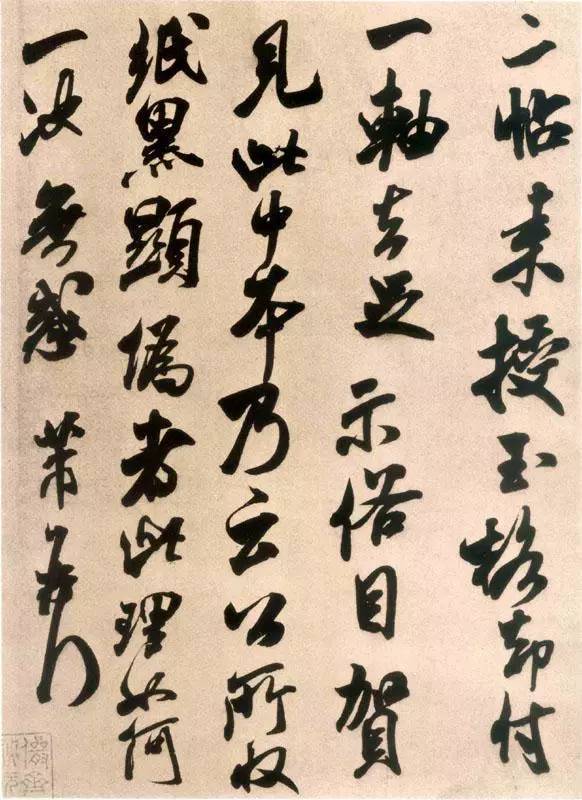 二帖来授玉格却付
一軸去足示俗目賀
見此中本乃云公所收
紙黑顯僞者此理如何
一决無惑 芾頓首